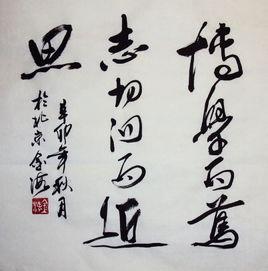 博學而篤
志切问而近
思
辛卯年秋月
於北京